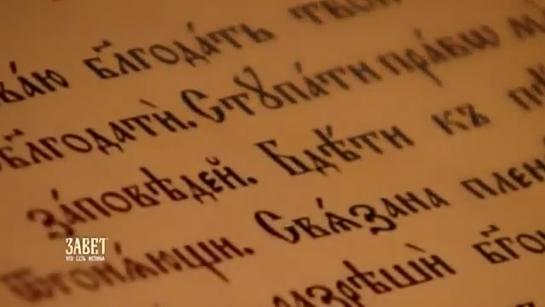 ва́ю бл҃года́тъ твою
бл҃года́ти. Стꙋпа́ти пра́вѡ
за́повѣдей. Бдѣ́ти къ
ѿгонѧ́ющи. Свѧ́зана плен
и҆зрѣши́
ЗАВЕТ
ЧТО ЕСТЬ ИСТИНА